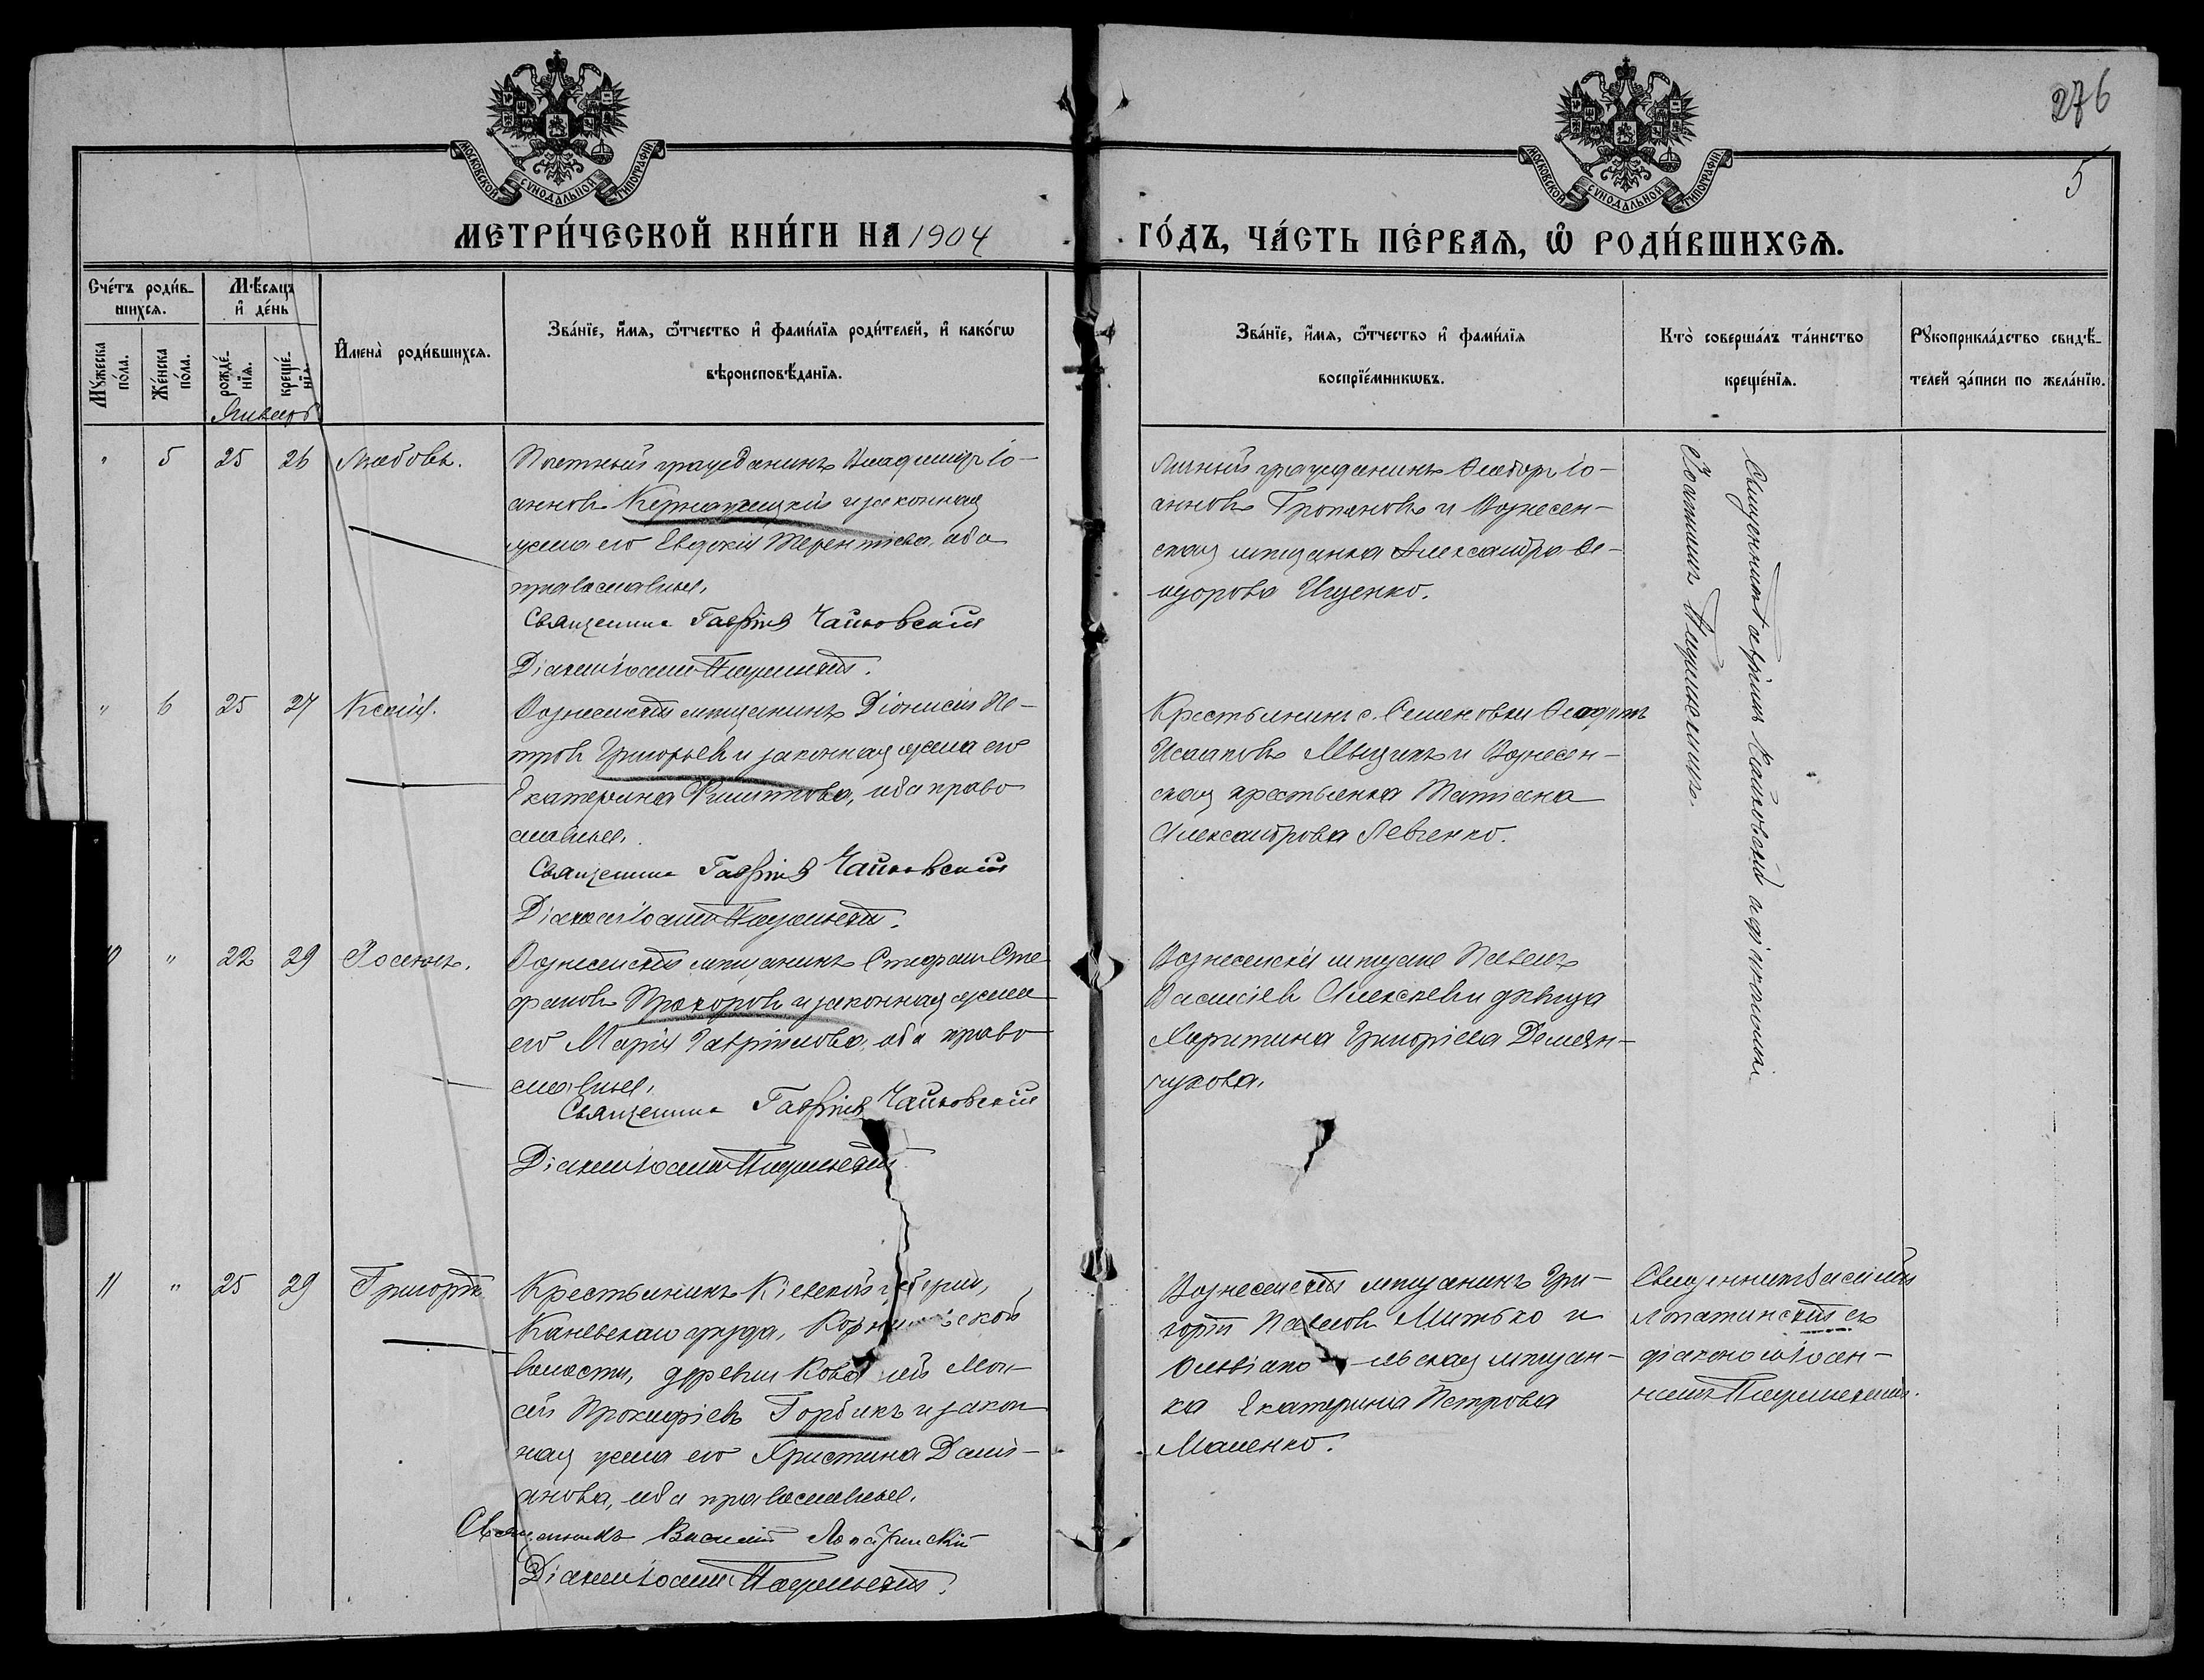 276
5
МОСКОВСКОЙ СѴНОДАЛЬНОЙ ТИПОГРАФІИ
МОСКОВСКОЙ СѴНОДАЛЬНОЙ ТИПОГРАФІИ
МЕТРИ́ЧЕСКОЙ КНИ́ГИ НА 1904
ГО́ДЪ, ЧА́СТЬ ПЕ́РВАЯ, Ѽ РОДИ́ВШИХСѦ.
Сче́тъ роди́в-
шихсѧ.
Мꙋжеска по́ла.
Же́нска по́ла.
Мѣ́сѧцъ
и҆ де́нь
рожде́-
нїѧ.
креще́-
нїѧ.
Январь
И҆мена̀ роди́вшихсѧ.
Зва́нїе, и҆́мѧ, ѻ҆́тчество и҆ фами́лїѧ роди́телей, и҆ како́гѡ
вѣроисповѣ́данїѧ.
Зва́нїе, и҆́мѧ, ѻ҆́тчество и҆ фами́лїѧ
воспрїе́мникѡвъ.
Кто̀ соверша́лъ та́инство
креще́нїѧ.
Рꙋкоприкла́дство свидѣ́-
телей за́писи по жела́нїю.
" 5 25 26 Любовь.
Почетный гражданинъ Владиміръ Іо-
анновъ и законная
жена его Евдокія Терентіева, оба
православные.
Священникъ Гавріилъ Чайковскій
Діаконъ Іоаннъ
Личный гражданинъ Ѳеодоръ Іо-
анновъ Тропановъ и Вознесен-
ская мѣщанка Александра Ѳе-
одорова Ищенко.
Священникъ Гавріилъ Чайковскій съ діакономъ
Іоанномъ
" 6 25 27 Ксенія.
Вознесенскій мѣщанинъ Діонисій Пе-
тровъ Григорьевъ и законная жена его
Екатерина Филиппова, оба право
славные.
Священникъ Гавріилъ Чайковскій
Діаконъ Іоаннъ
Крестьянинъ с. Семеновки
Исааковъ Мыцикъ и Вознесен-
ская крестьянка Татіана
Александрова Левченко.
10 " 22 29 Іосифъ.
Вознесенскій мѣщанинъ Стефанъ Сте
фановъ Прохоровъ и законная жена
его Марія Гавріилова, оба право
славные.
Священникъ Гавріилъ Чайковскій
Діаконъ Іоаннъ
Вознесенскій мѣщане Павелъ
Василіевъ Алексѣевъ и дѣвица
Харитина Григоріева Демян-
чукова.
11 " 25 29 Григорій
Крестьянинъ Кіевской губерніи,
Каневскаго уѣзда,
волости, деревни Мои-
сей Прокофіевъ Горбикъ и закон
ная жена его Христина Дамі-
анова, оба православные.
Священникъ Василій Лопатинскій
Діаконъ Іоаннъ
Вознесенскій мѣщанинъ Гри-
горій Павловъ Митько и
Ольвіопольская мѣщан-
ка Екатерина Петрова
Маленко.
Священникъ Василій
Лопатинскій съ
діакономъ Іоан-
номъ